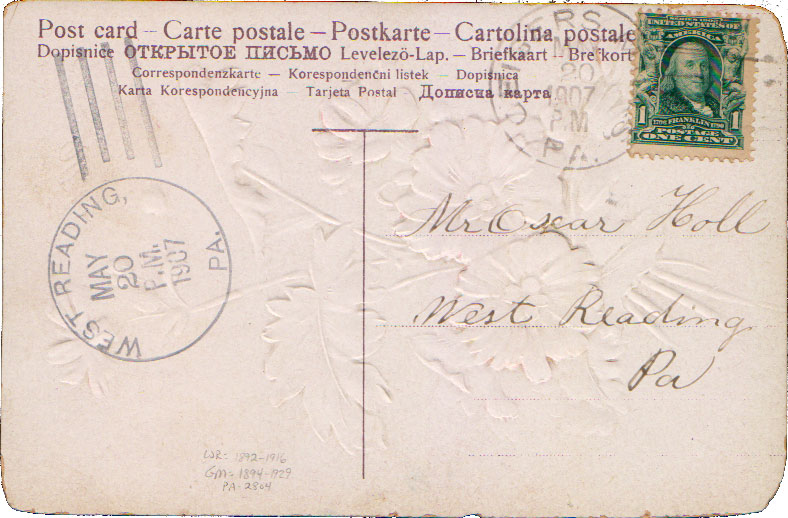 Post card – Carte postale – Postkarte – Cartolina postale
Dopisnice ОТКРЫТОЕ ПИСЬМО Levelező-Lap. – Briefkaart – Brefkort
Correspondenzkarte – Korespondenční listek – Dopisnica
Karta Korespondencyjna – Tarjeta Postal – Дописна карта
MAY
20
1907
P.M.
PA.
SERIES 1902
UNITED STATES OF
AMERICA
1 1706 FRANKLIN 1790 1
POSTAGE
ONE CENT
WEST READING, PA.
MAY
20
P.M.
1907
Mr Oscar Holl
West Reading
Pa
WR: 1892-1916
GM: 1894-1929
PA-2804